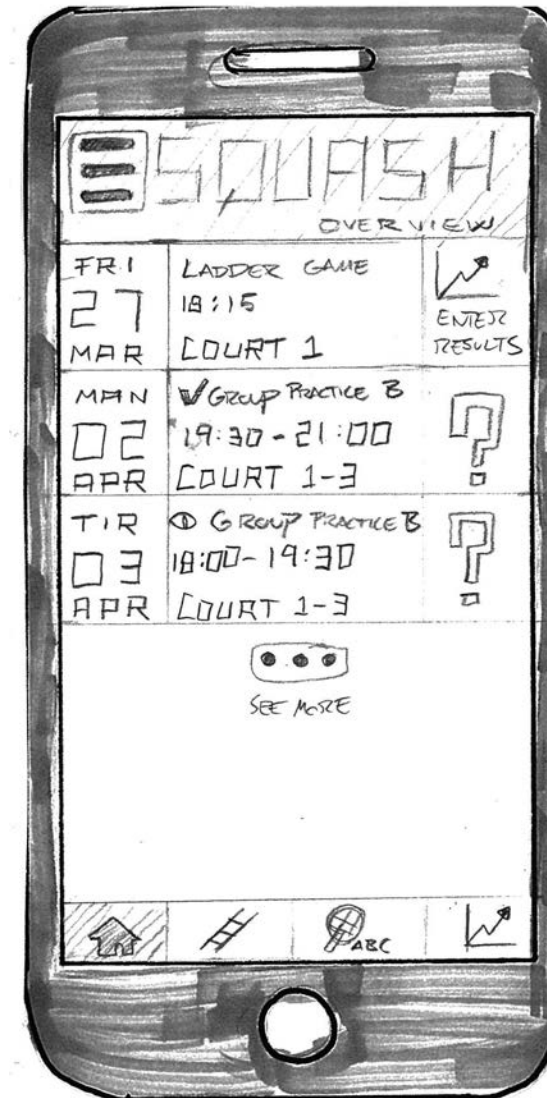 SQUASH
OVERVIEW
FRI
27
MAR
LADDER GAME
18:15
COURT 1
ENTER
RESULTS
MAN
02
APR
GROUP PRACTICE B
19:30-21:00
COURT 1-3
?
TIR
03
APR
GROUP PRACTICE B
18:00-19:30
COURT 1-3
?
SEE MORE
ABC